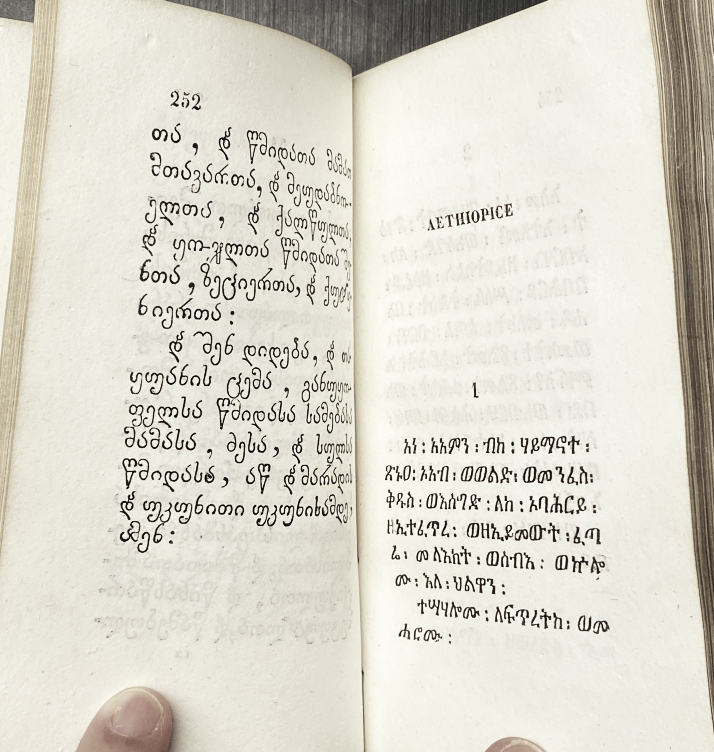 252
თა, და წმიდათა მამათ
მთავართა, და მეუდაბნო-
ელთა, და ქალწულთა,
და ყო-ველთა წმიდათა შე-
ნთა,
ნიერთა:
და შენ დიდება, და თა
ყუანის ცემა, განუყო-
ფელსა წმიდასა სამებასა
მამასა, ძესა, და სულსა
წმიდასა, აწ და მარადის
და უკუნითი უკუნისამდე,
ამენ:
AETHIOPICE
1
አነ፡ አአምን፡ ብከ፡ ሃይማኖተ፡
ጽኑዐ፡ ኦአብ፡ ወወልድ፡ ወመንፈስ፡
ቅዱስ፡ ወእሰግድ፡ ለከ፡ ኦባሕርይ፡
ዘኢተፈጥረ፡ ወዘኢይመውት፡ ፈጣ
ሬ፡ መላእክት፡ ወሰብእ፡ ወኵሎ
ሙ፡ እለ፡ ህልዋን፡
ተሣሃሎሙ፡ ለፍጥረትከ፡ ወመ
ሐሮሙ፡